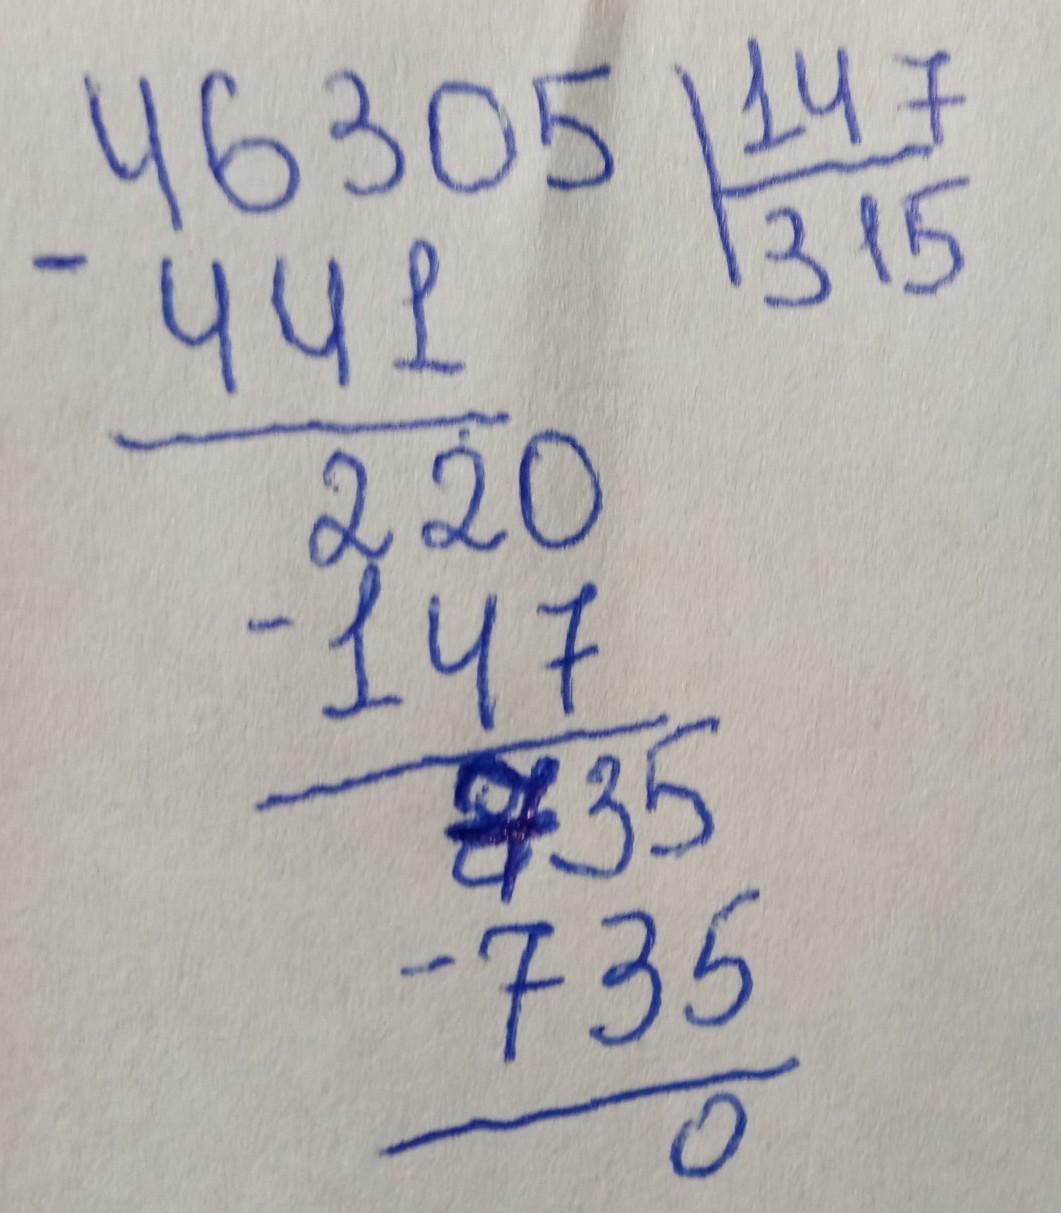 46305 147
315
- 441
220
- 147
735
- 735
0